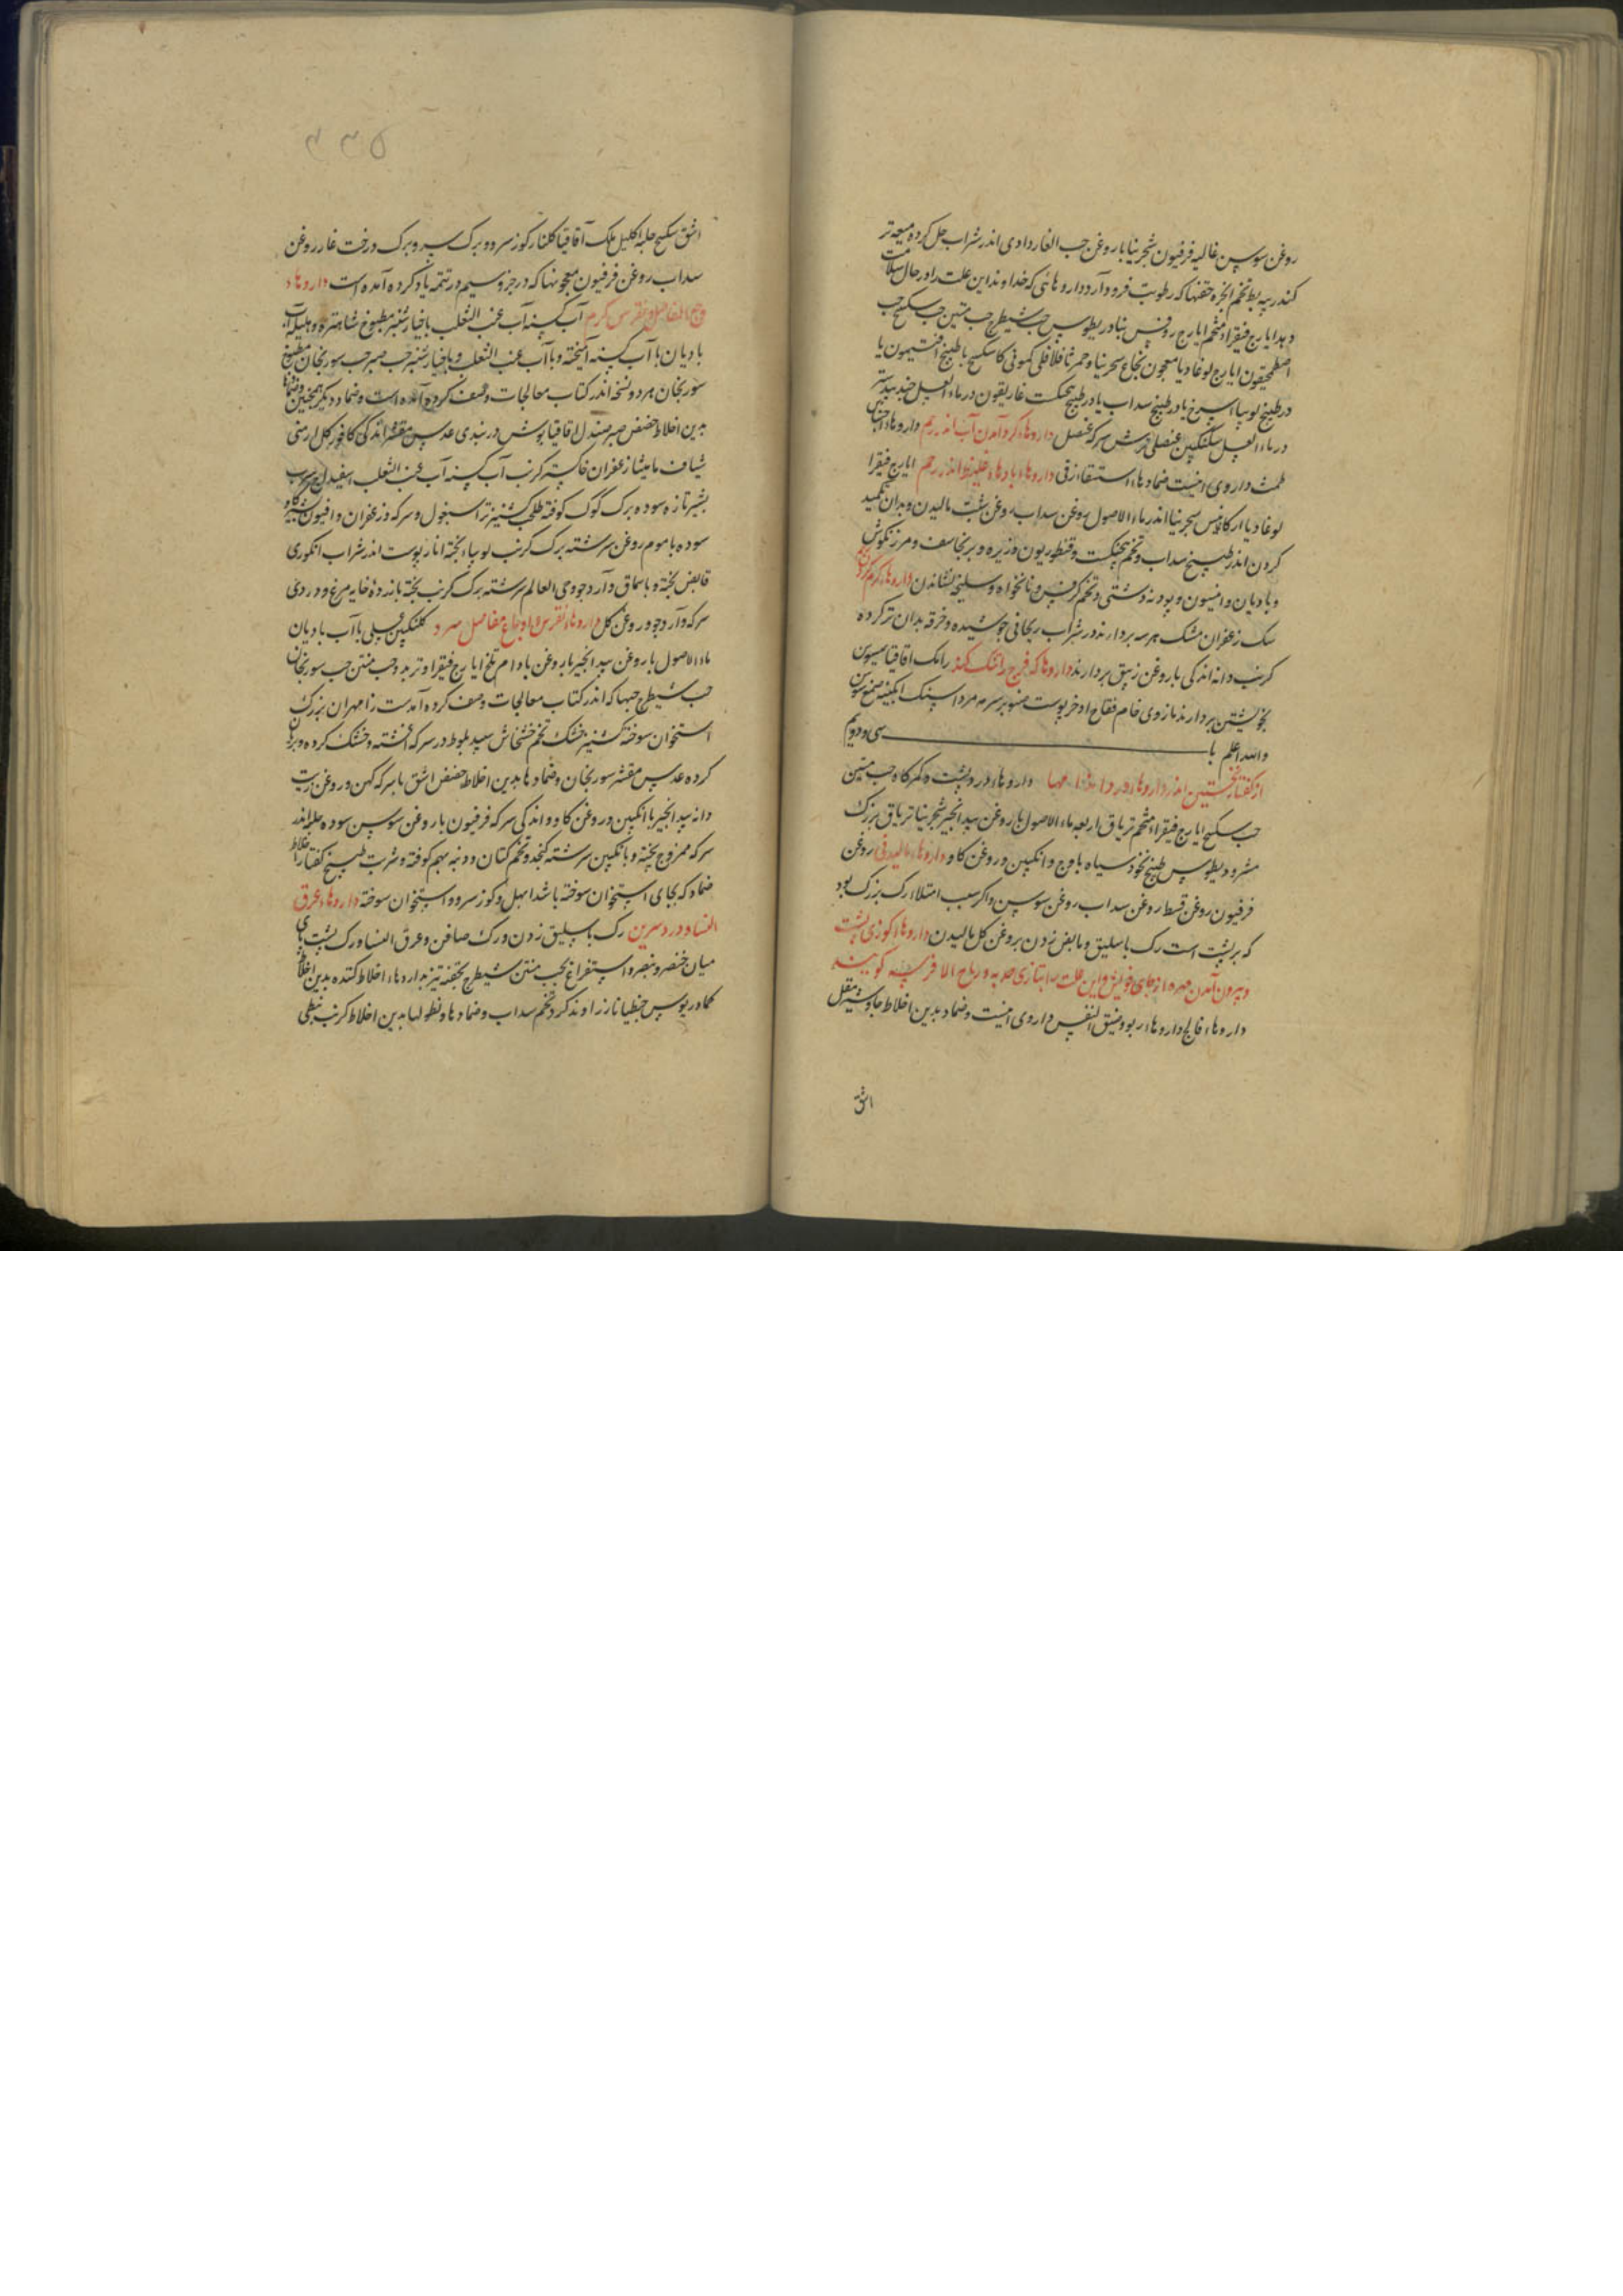 روغن سوسن غالیه فرفیون شجرینا با روغن حب الغار دادی اندر شراب حل کرده میعه تر
کندر پیه بط تخم انجره حقنها که رطوبت فرود آرد داروهائی که خداوند این علت را در حال سلامت
دهد ایارج فیقرا شحم ایارج روفس بنادریطوس حب شیطرج حب منتن حب سکبینج حب
اصطمحیقون ایارج لوغادیا معجون نجاح سجرینا و حمرثا فلافلی کمونی کاسکبینج با طبیخ افتیمون یا
در طبیخ لوبیا سرخ یا در طبیخ سداب یا در طبیخ غاریقون در ماء العسل جندبیدستر
در ماء العسل سکنگبین عنصلی ترش سرکه عنصل داروهاء کرد آمدن آب اندر رحم داروهاء احتباس
طمث داروی اینست ضمادهاء استسقاء زقی داروهاء بادهاء غلیظ اندر رحم ایارج فیقرا
لوغادیا ارکاغنیس سجرینا اندر ماء الاصول روغن سداب روغن شبت مالیدن و بدان تکمید
کردن اندر طبیخ سداب و تخم پنجنکشت و قنطوریون و زیره و برنجاسف و مرزنکوش
و بادیان و انیسون و پودنه دشتی و تخم کرفس و نانخواه و سلیخه نشاندن داروهاء کرم کردن رحم
سک زعفران مشک هر سه بردارند در شراب ریحانی جوشیده و خرقه بدان تر کرده
کرنب دانه اندکی با روغن زنبق بردارند داروها که فرج را تنک کند رامک اقاقیا سوسن
بخویشتن بردارند مازوی خام فقاح اذخر پوست صنوبر سرمه مرداسنک آبگینه صمغ سوسن
والله اعلم با سی و دویم
از کفتار نخستین اندر داروهاء درد اندامها داروهاء درد پشت و کمرکاه حب منتن
حب سکبینج ایارج فیقرا شحم تریاق اربعه ماء الاصول با روغن بیدانجیر شجرینا تریاق بزرک
مثرودیطوس طبیخ نخود سیاه با وج و انکبین و روغن کاو داروهاء مالیدنی روغن
فرفیون روغن قسط روغن سداب روغن سوسن و اکر سبب امتلاء رک بزرک بود
که بر پشت است رک باسلیق و مابض زدن بروغن کل مالیدن داروهاء کوزی پشت
و بیرون آمدن مهره از جای خویش و این علت را بتازی حدبه و ریاح الافرسه کویند
داروهاء فالج داروهاء ربو و ضیق النفس داروی اینست و ضماد بدین اخلاط جاوشیر مقل
اشق
۴۳۵
اشق سکبینج حلبه اکلیل ملک اقاقیا کلنار کوز سرو و برک سرو برک درخت غار روغن
سداب روغن فرفیون معجونها که در جزو سیم در تتمه یاد کرده آمده است داروهاء
وجع المفاصل و نقرس کرم آب کسنه آب عنب الثعلب با خیارشنبر مطبوخ شاهتره و هلیله آب
بادیان با آب کسنه آمیخته و با آب عنب الثعلب و با خیارشنبر حب صبر حب سورنجان مطبوخ
سورنجان هر دو نسخه اندر کتاب معالجات وصف کرده آمده است و ضماد دیگر همچنین و ضمادها
بدین اخلاط حضض صبر صندل اقاقیا بوش دربندی عدس مقشر اندکی کافور کل ارمنی
شیاف مامیثا زعفران خاکستر کرنب آب کسنه آب عنب الثعلب اسفیداج سرب
بشیر تازه سوده برک کوک کوفته طحلب کشنیز تر اسبغول و سرکه و زعفران و افیون بشیر کاو
سوده با موم روغن سرشته برک کرنب لوبیاء پخته انار پوست اندر شراب انکوری
قابض پخته و با سماق و آرد جو و حی العالم سرشته برک کرنب پخته با زرده خایه مرغ و دردی
سرکه و آرد جو و روغن کل داروهاء نقرس و اوجاع مفاصل سرد کلنکبین عسلی با آب بادیان
ماء الاصول با روغن بیدانجیر با روغن بادام تلخ ایارج فیقرا و تربد و حب منتن حب سورنجان
حب شیطرج حبها که اندر کتاب معالجات وصف کرده آمدست زامهران بزرک
استخوان سوخته کشنیز خشک تخم خشخاش سپید بلوط در سرکه آغشته و خشک کرده و بریان
کرده عدس مقشر سورنجان و ضمادها بدین اخلاط حضض اشق با سرکه کهن و روغن زیت
دانه بیدانجیر با انکبین و روغن کاو و اندکی سرکه فرفیون با روغن سوسن سوده حلبه اندر
سرکه ممزوج پخته و با نکبین سرشته کنجد و تخم کتان و دونبه بهم کوفته و شربت طبیخ کفتار اخلاط
ضماد که بجای استخوان سوخته باشد ابهل و کوز سرو و استخوان سوخته داروهاء عرق
النسا و درد سرین رک باسلیق زدن و رک صافن و عرق النسا و رک پشت پای
میان خنصر و بنصر و استفراغ بحب منتن شیطرج بحقنه تیز بداروهاء اخلاط کننده بدین اخلاط
کمادریوس جنطیانا زراوند کرد تخم سداب و ضمادها و نطولها بدین اخلاط کرنب نبطی